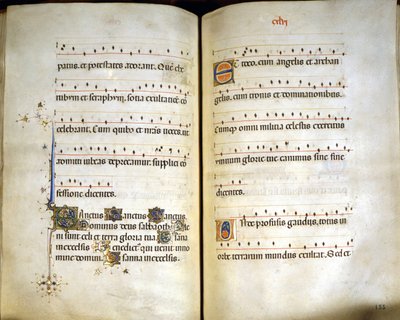 patus. et potestates adorant. Que che
rubyn et seraphyn. socia exultatione co
celebrant. Cum quibus et nostras uoces. ut
admitti iubeas deprecamur. supplici co
fessione dicentes.
Sanctus Sanctus Sanctus
Dominus deus sabaoth.
ni sunt celi et terra gloria tua. Osana
in excelsis. Benedictus qui uenit in no
mine domini. Osanna in excelsis.
cxlvi
Et ideo. cum angelis et archan
gelis. cum tronis et dominationibus.
Cumque omni militia celestis exercitus
ymnum glorie tue canimus sine fine
dicentes.
profusis gaudijs. totus in
orbe terrarum mundus exultat. Sed et
155